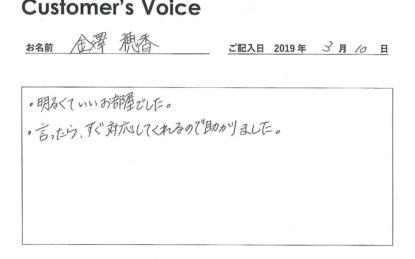 Customer's Voice
お名前 金澤 穂香 ご記入日 2019 年 3 月 10 日
・明るくていいお部屋でした。
・言ったら、すぐ対応してくれるので助かりました。